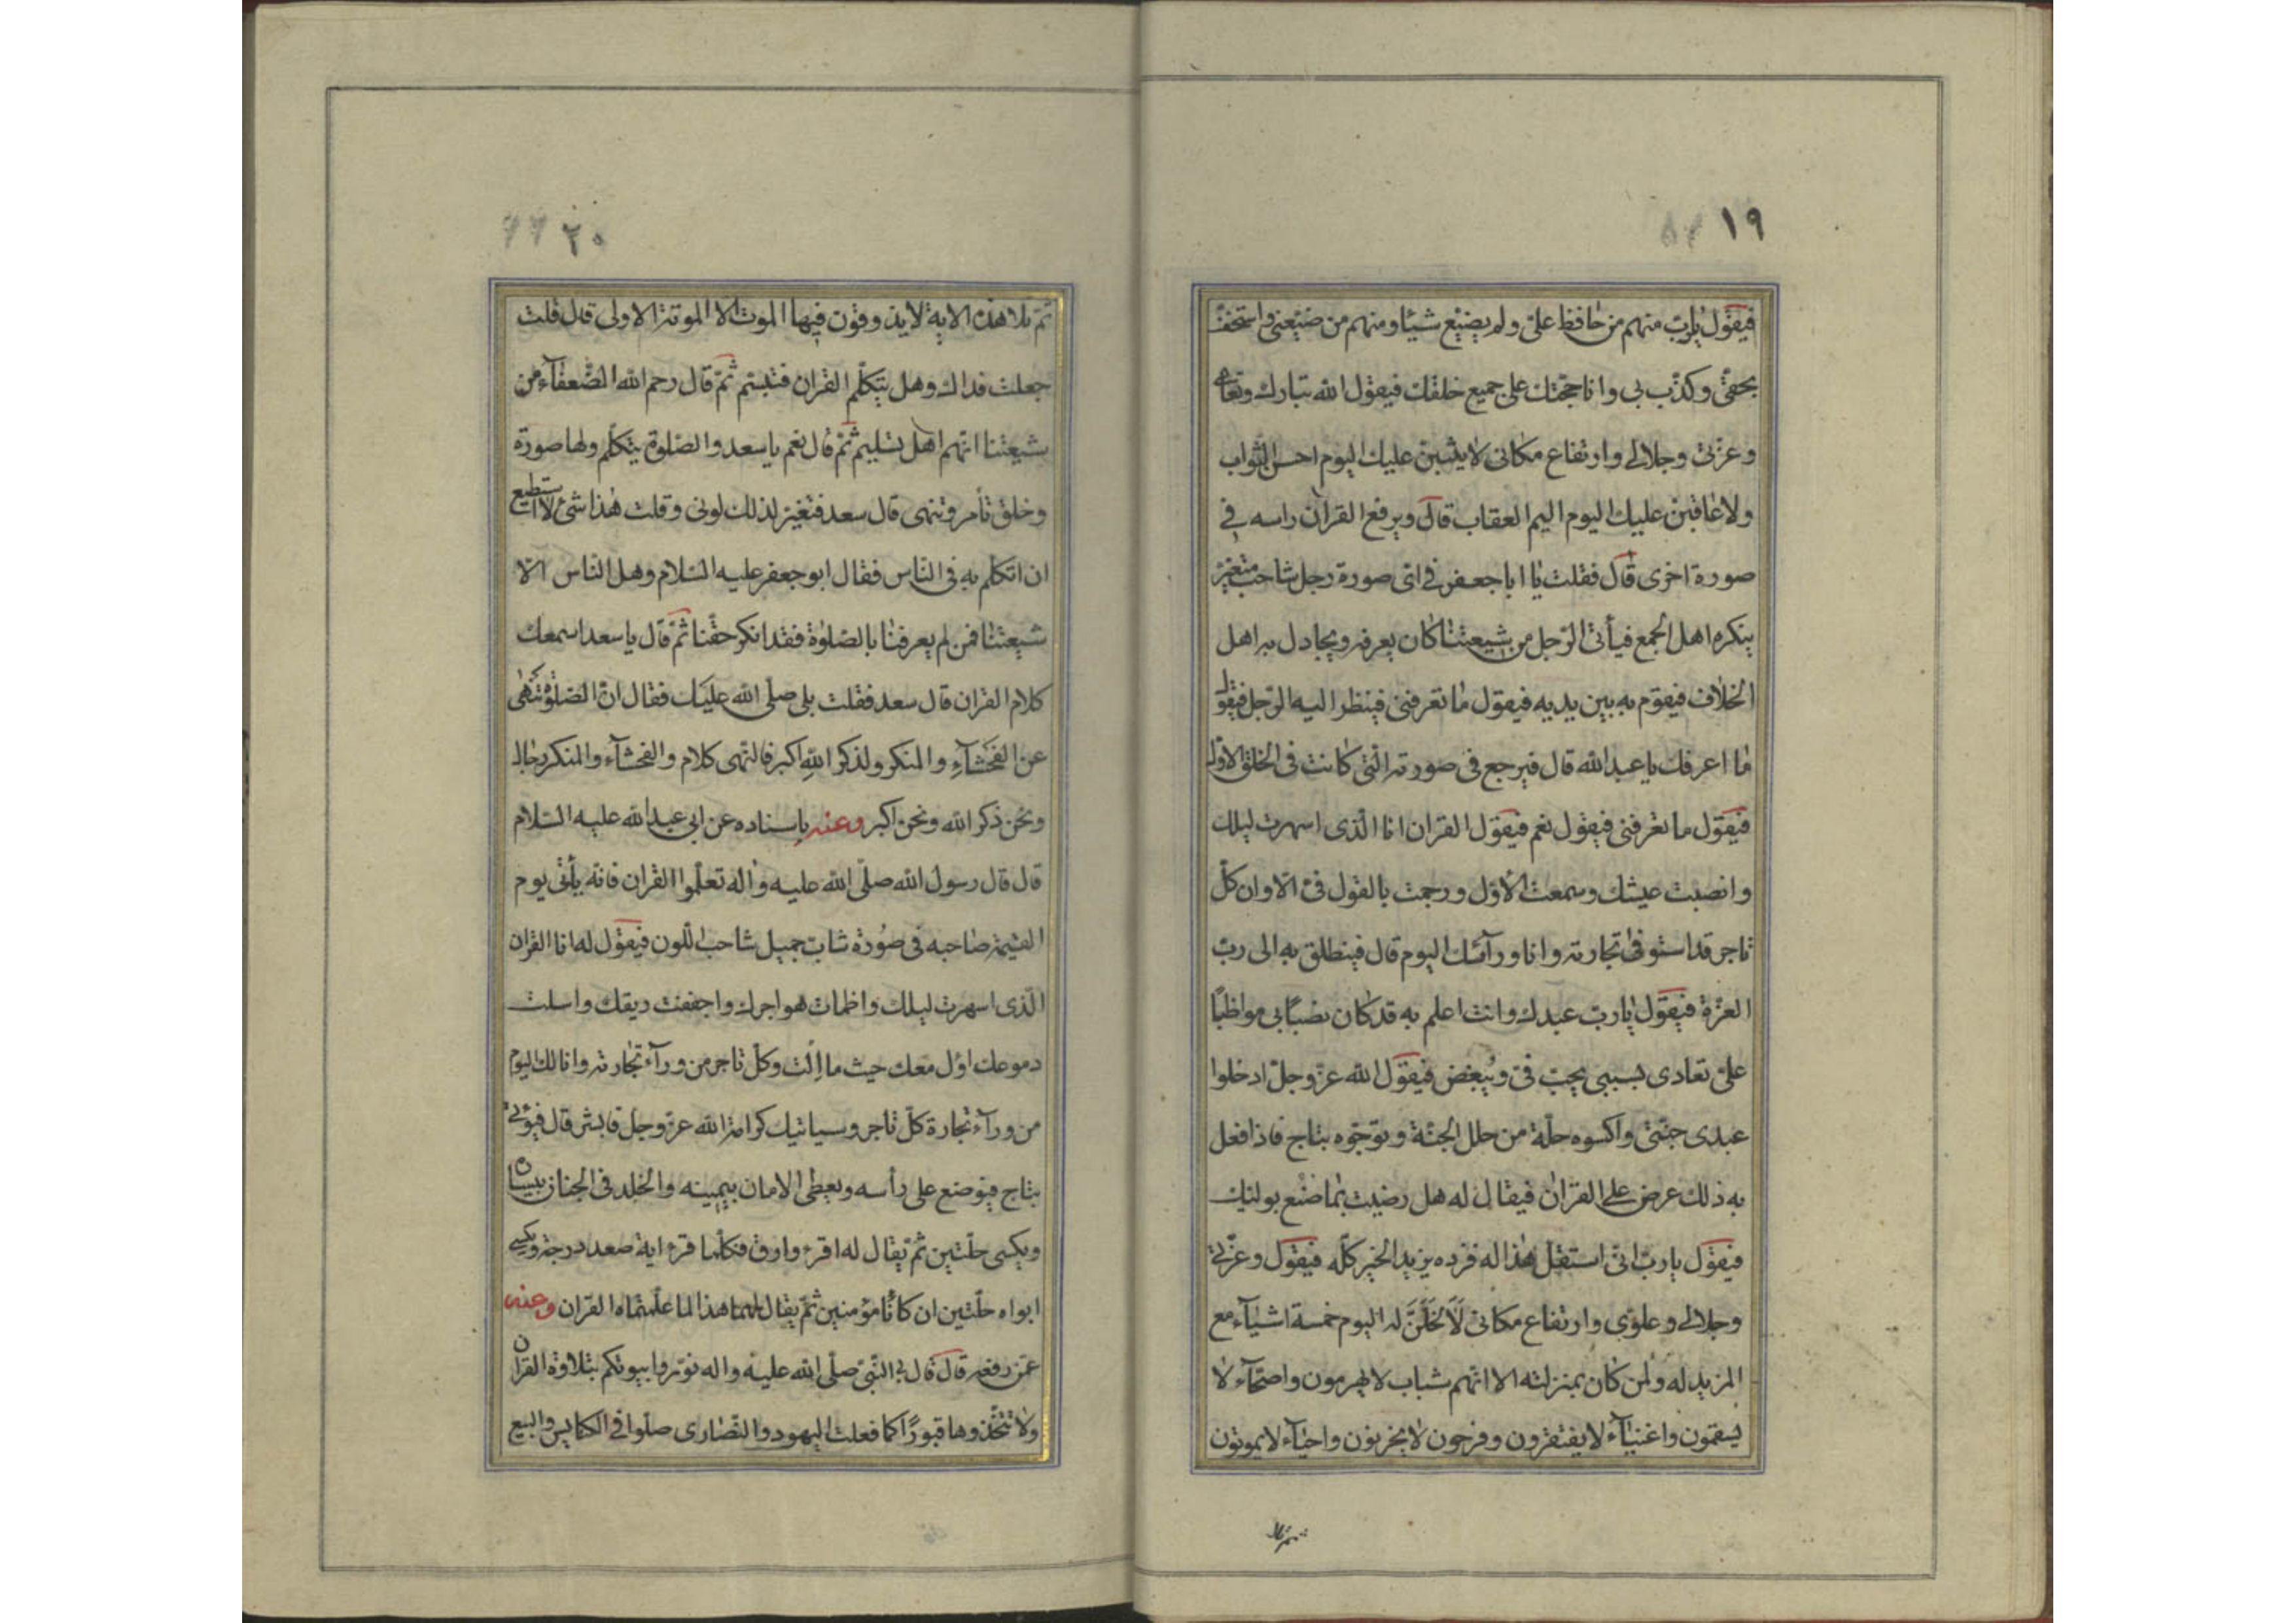 ١٩
فيقول يارب منهم من حافظ علىّ ولم يضيّع شيئا ومنهم من ضيّعنى واستخفّ
بحقّى وكذّب بى وانا حجّتك على جميع خلقك فيقول الله تبارك وتعالى
وعزّتى وجلالى وارتفاع مكانى لاثيبنّ عليك اليوم احسن الثواب
ولاعاقبنّ عليك اليوم اليم العقاب قال ويرفع القرآن راسه فى
صورة اخرى قال فقلت يا ابا جعفر فى اىّ صورة رجل شاحب متغيّر
ينكره اهل الجمع فيأتى الرّجل من شيعتنا كان يعرفه ويجادل به اهل
الخلاف فيقوم به بين يديه فيقول ما تعرفنى فينظر اليه الرّجل فيقول
ما اعرفك يا عبد الله قال فيرجع فى صورته الّتى كانت فى الخلق الاوّل
فيقول ما تعرفنى فيقول نعم فيقول القران انا الّذى اسهرت ليلك
وانصبت عيشك وسمعت الاوّل ورجمت بالقول فىّ الا وان كلّ
تاجر قد استوفى تجارته وانا ورآئك اليوم قال فينطلق به الى ربّ
العزّة فيقول يا ربّ عبدك وانت اعلم به قد كان نصبًا بى مواظبًا
علىّ تعادى بسببى يحبّ فىّ ويُبغض فيقول الله عزّ وجلّ ادخلوا
عبدى جنّتى واكسوه حلّة من حلل الجنّة وتوّجوه بتاج فاذا فعل
به ذلك عرض على القران فيقال له هل رضيت بما صنع بوليّك
فيقول يا ربّ انّى استقلّ هذا له فزده يزيد الخير كلّه فيقول وعزّتى
وجلالى وعلوّى وارتفاع مكانى لَأَنْحَلَنَّ له اليوم خمسة اشياء مع
المزيد له ولمن كان بمنزلته الا انّهم شباب لا يهرمون واصحّاء لا
يسقمون واغنياء لا يفتقرون وفرحون لا يحزنون واحياء لا يموتون
ثم تلا
٢٠
ثمّ تلا هذه الاية لا يذوقون فيها الموت الا الموتة الاولى قال قلت
جعلت فداك وهل يتكلّم القران فتبسّم ثمّ قال رحم الله الضّعفاء من
شيعتنا انّهم اهل تسليم ثمّ قال نعم يا سعد والصّلوة يتكلّم ولها صورة
وخلق تأمر وتنهى قال سعد فتغيّر لذلك لونى وقلت هذا شئ لا استطيع
ان اتكلّم به فى النّاس فقال ابو جعفر عليه السّلام وهل النّاس الّا
شيعتنا فمن لم يعرفنا بالصّلوة فقد انكر حقّنا ثمّ قال يا سعد اسمعك
كلام القران قال سعد فقلت بلى صلّى الله عليك فقال انّ الصّلوة تنهى
عن الفحشاء والمنكر ولذكر الله اكبر فالنّهى كلام والفحشاء والمنكر رجال
ونحن ذكر الله ونحن اكبر وعنه باسناده عن ابى عبد الله عليه السّلام
قال قال رسول الله صلّى الله عليه واله تعلّموا القران فانّه يأتى يوم
القيمة صاحبه فى صورة شابّ جميل شاحب اللّون فيقول له انا القران
الّذى اسهرت ليلك واظمات هواجرك واجففت ريقك واسلت
دموعك اؤل معك حيث ما اُلت وكلّ تاجر من ورآء تجارته وانا لك اليوم
من ورآء تجارة كلّ تاجر وسياتيك كرامة الله عزّ وجلّ فابشر قال فيؤتى
بتاج فيوضع على رأسه ويعطى الامان بيمينه والخلد فى الجنان بيساره
ويكسى حلّتين ثمّ يقال له اقرء وارق فكلّما قرء اية صعد درجة ويكسى
ابواه حلّتين ان كانا مؤمنين ثمّ يقال لهما هذا لما علّمتماه القران وعنه
عمّن رفعه قال قال النّبىّ صلّى الله عليه واله نوّروا بيوتكم بتلاوة القران
ولا تتّخذوها قبورًا كما فعلت اليهود والنّصارى صلّوا فى الكنايس والبيع